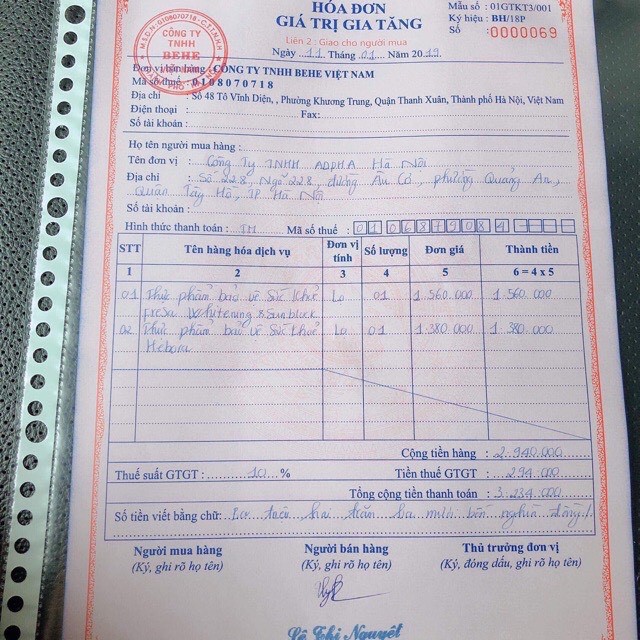 HÓA ĐƠN
GIÁ TRỊ GIA TĂNG
Liên 2 : Giao cho người mua
Ngày 11 Tháng 01 Năm 2019
Mẫu số : 01GTKT3/001
Ký hiệu : BH/18P
Số : 0000069
M.S.D.N: 0108070718 - C.T.T.N.H.H
CÔNG TY
TNHH
BEHE
Đơn vị bán hàng : CÔNG TY TNHH BEHE VIỆT NAM
Mã số thuế : 0108070718
Địa chỉ : Số 48 Tô Vĩnh Diện, , Phường Khương Trung, Quận Thanh Xuân, Thành phố Hà Nội, Việt Nam
Điện thoại : Fax:
Số tài khoản :
Họ tên người mua hàng :
Tên đơn vị : Công Ty TNHH ADPHA Hà Nội
Địa chỉ : Số 228, Ngõ 228, đường Âu Cơ, phường Quảng An,
Quận Tây Hồ, TP Hà Nội
Số tài khoản :
Hình thức thanh toán : TM Mã số thuế 0106879084
STT Tên hàng hóa dịch vụ Đơn vị tính Số lượng Đơn giá Thành tiền
1 2 3 4 5 6 = 4 x 5
01 Thực phẩm bảo vệ Sức Khỏe Lọ 01 1.560.000 1.560.000
Fresa Whitening & Sunblock
02 Thực phẩm bảo vệ Sức Khỏe Lọ 01 1.380.000 1.380.000
Hebora
Cộng tiền hàng : 2.940.000
Thuế suất GTGT : 10 % Tiền thuế GTGT : 294.000
Tổng cộng tiền thanh toán : 3.234.000
Số tiền viết bằng chữ: Ba triệu hai trăm ba mươi bốn nghìn đồng./.
Người mua hàng Người bán hàng Thủ trưởng đơn vị
(Ký, ghi rõ họ tên) (Ký, ghi rõ họ tên) (Ký, đóng dấu, ghi rõ họ tên)
Lê Thị Nguyệt